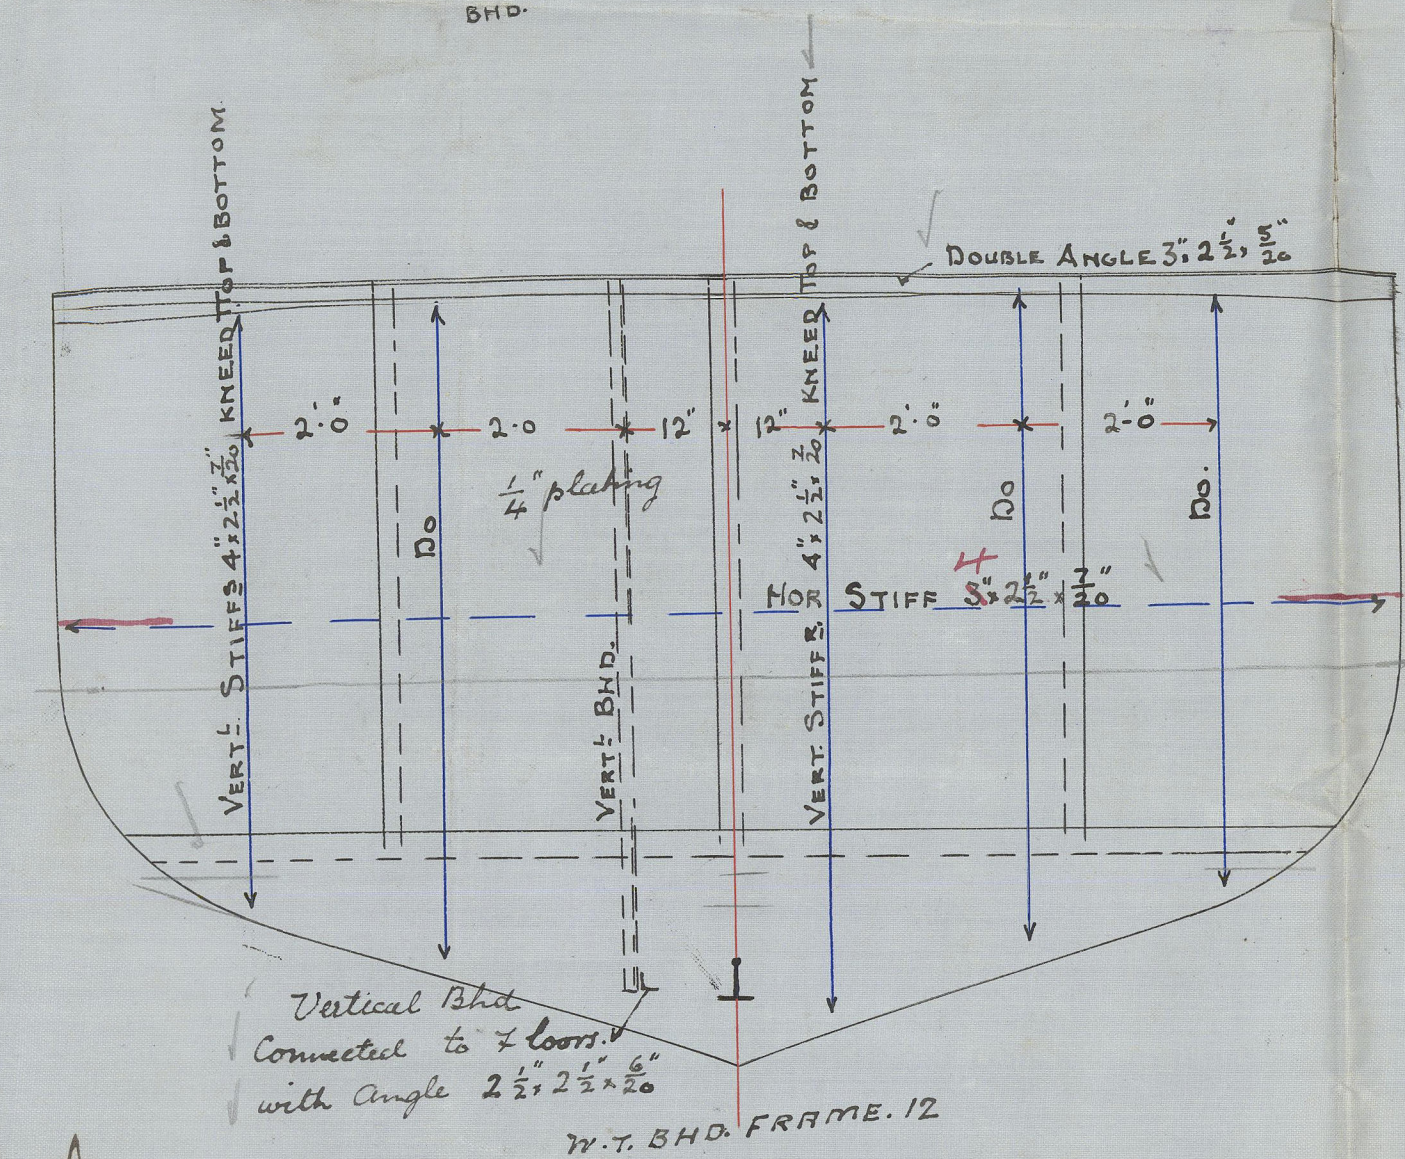 BHD.
DOUBLE ANGLE 3" × 2 1/2" × 5/20"
VERTL. STIFFS 4" × 2 1/2" × 7/20" KNEED TOP & BOTTOM.
VERT. STIFFR. 4" × 2 1/2" × 7/20 KNEED TOP & BOTTOM
2'·0"
2·0
12"
12"
2'·0"
2'-0"
1/4" plating
Do
Do
Do.
4
HOR STIFF 3" × 2 1/2" × 7/20"
VERTL. BHD.
Vertical Bhd
Connected to Floors.
with Angle 2 1/2" × 2 1/2" × 6/20"
W.T. BHD. FRAME. 12